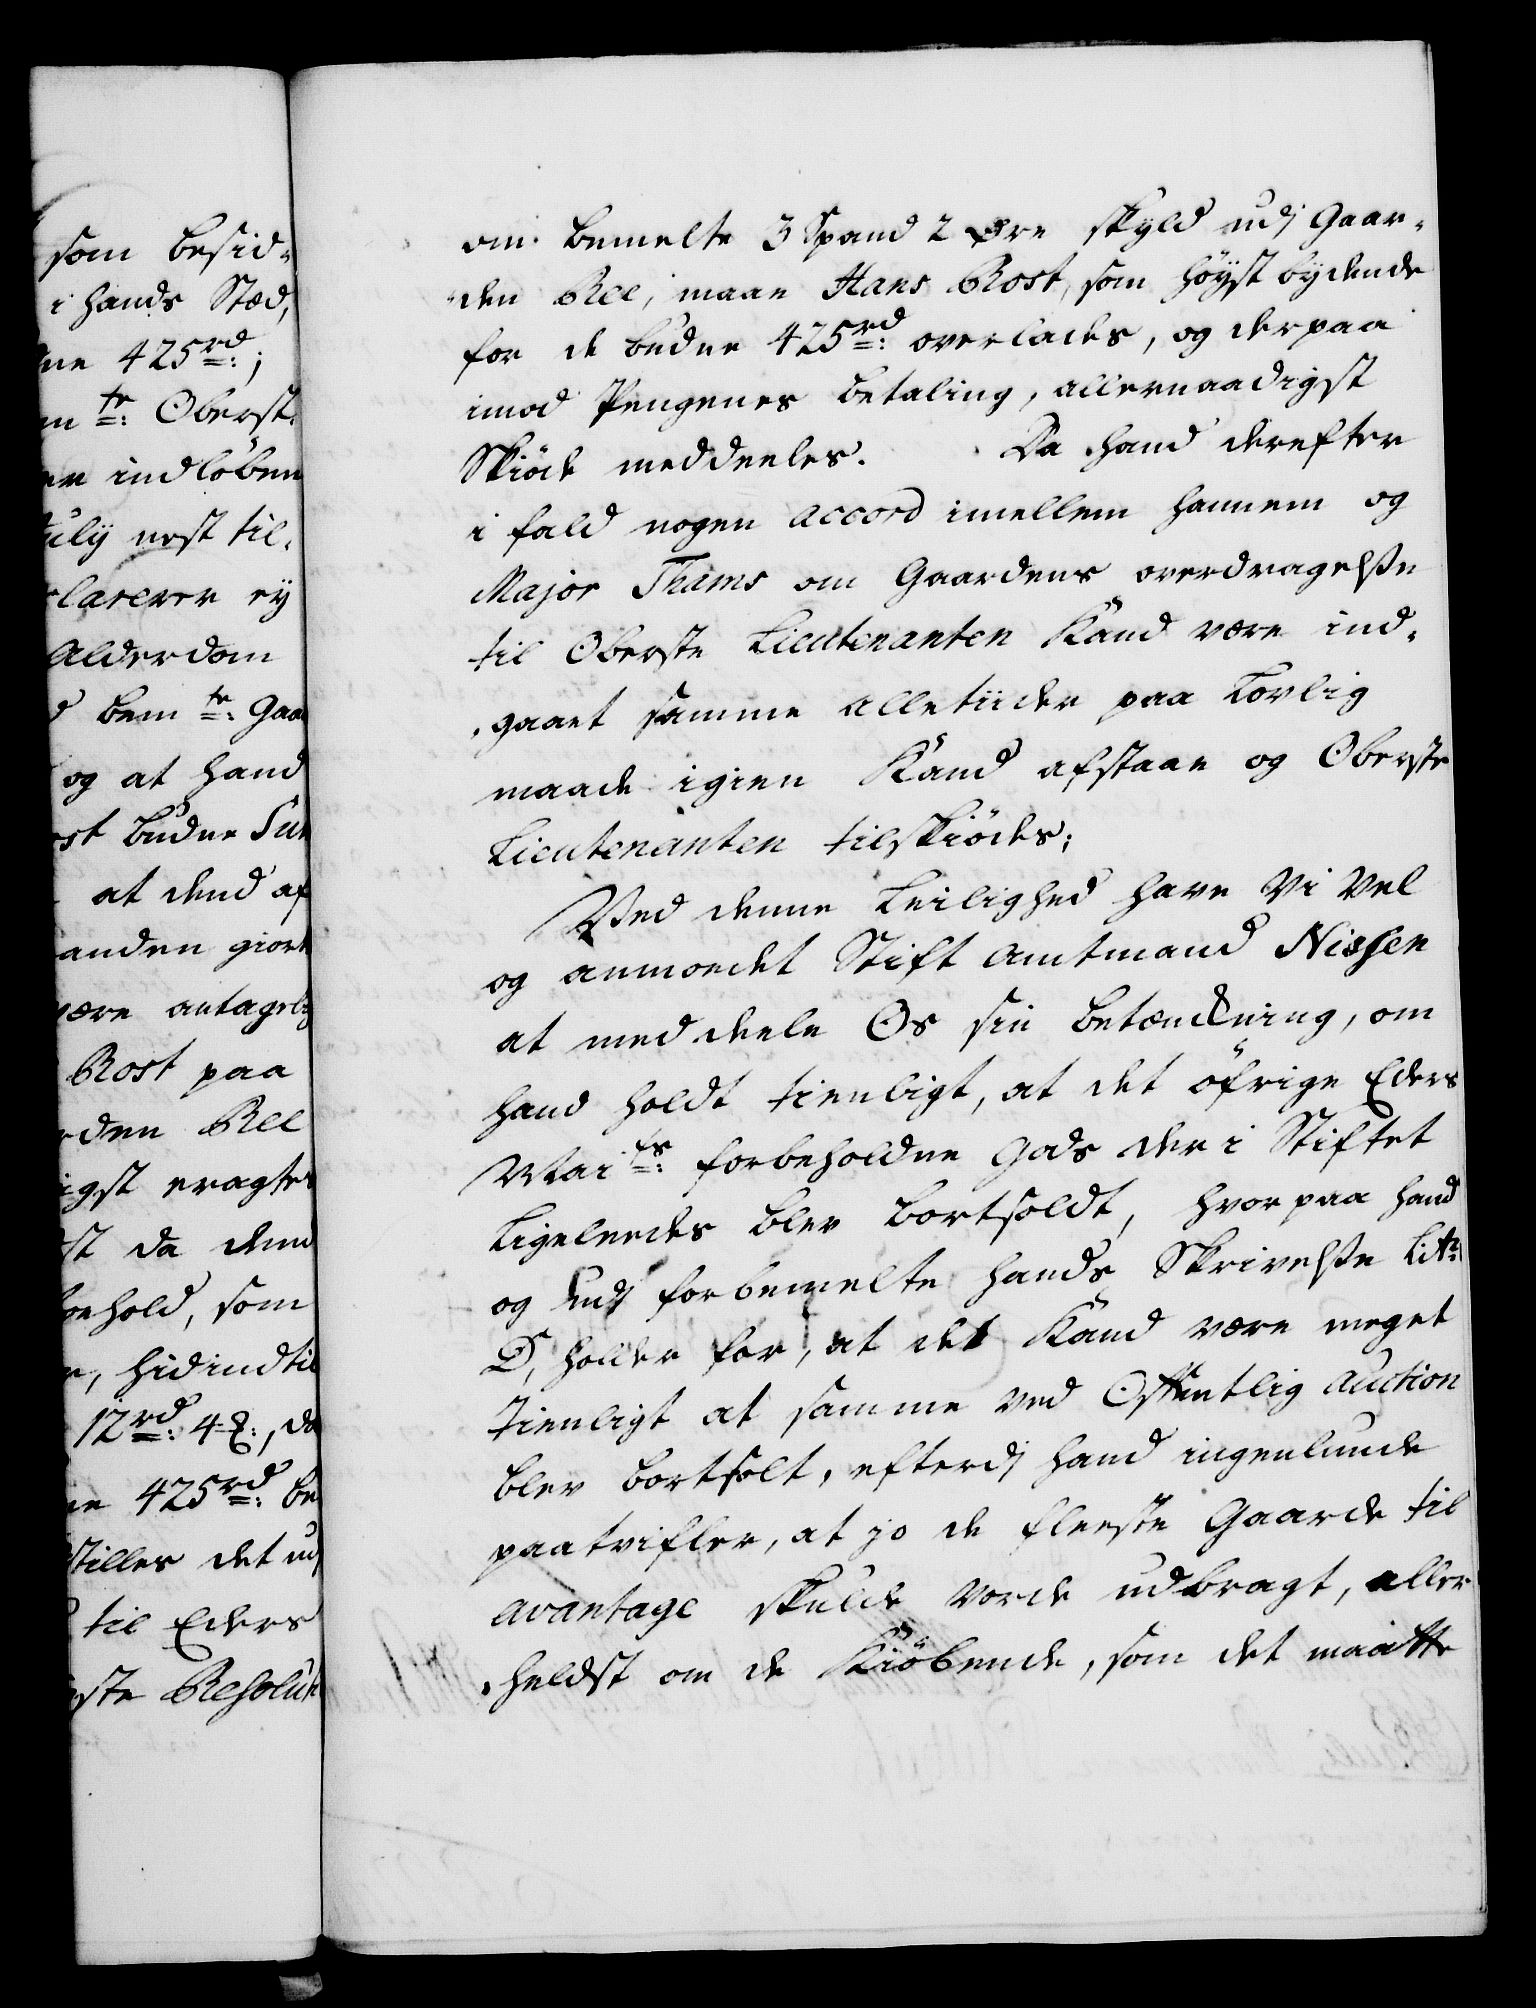 som besid-
i hands Stæd,
ne 425rd:;
m te: Oberst.
er indløben
July nest til.
clarerer ey
Alderdom
d bem te: Gaa
og at hand
st budne Su
at dend af
anden giort
være antagelig
Rost paa
den Ree
igst eragtes
st da dend
behold, som
e, hidindtil
12rd: 4 ß:, da
ne 425rd: be
stilles det ud
til Eders
ste Resolut
om bemelte 3 Spand 2 Øre skyld udj Gaar-
den Ree, maae Hans Rost, som høyst bydende
for de budne 425rd: overlades, og derpaa
imod Pengenes betaling, allernaadigst
Skiøde meddeeles. Da hand derefter
i fald nogen accord imellem hannem og
Major Thams om Gaardens overdragelse
til Oberste Lieutenanten Kand være ind-
gaaet samme alletiider paa Lovlig
maade igien Kand afstaae og Oberste
Lieutenanten tilskiødes;
Ved denne Leilighed have Vi Vel
og anmodet Stift Amtmand Nissen
at meddeele Os sin betænckning, om
hand holdt tienligt, at det øfrige Eders
Mai ts: forbeholdne Gods der i Stiftet
Ligeleedes blev bortsoldt, hvorpaa hand
og udj forbemelte hands Skrivelse Litr:
D, holder for, at det Kand være meget
tienligt at samme ved Offentlig Auction
blev bortsolt, efterdj hand ingenlunde
paatvifler, at jo de fleeste Gaarde til
avantage skulde vorde udbragt, aller
heldst om de Kiøbende, som det maatte